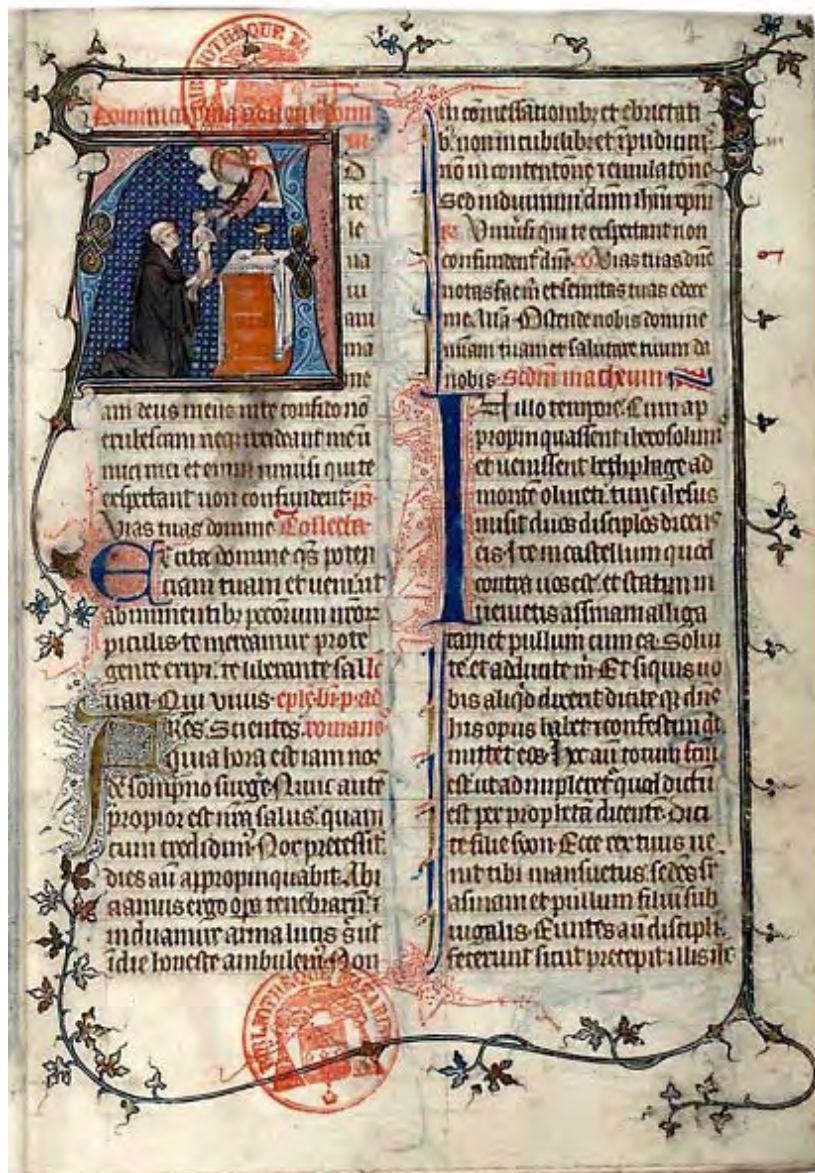 BIBLIOTHEQUE MA
Dominica
in
D
te
le
ua
ui
am
ma
me
am deus meus in te confido nō
erubescam neq̄ irrideant me ini
mici mei et enim uniūsi qui te
expectant non confundent̄ p̄s
Vias tuas domine Collecta
Excita domine q̄s poten
ciam tuam et ueni ut
ab iminentibȝ pccōrum nrōrȝ
piculis te mereamur prote
gente eripi te liberante sal
uari Qui uiuis eple bī p ad
Frēs Scientes romanos
quia hora est iam nos
de sompno surgeꝰ Nunc autē
propior est nrā salus quam
cum credidimꝰ Nox precessit
dies aū appropinquabit Abi
ciamus ergo opa tenebrarū ⁊
induamur arma lucis Sicut
in die honeste ambulemꝰ Non
in comessationibȝ et ebrietati
bȝ non in cubilibȝ et īpudicitijs
nō in contentōne ⁊ emulatōne
Sed induimini dnm ihm xpm
Vniūsi qui te expectant non
confundent̄ dnē Vias tuas dnē
notas fac m̄ et semitas tuas edoce
me Alla Ostende nobis domine
miam tuam et salutare tuum da
nobis Scdm matheum
In illo tempore Cum ap
propinquassent iherosolimis
et uenissent bethphage ad
montē oliueti tunc ihesus
misit duos discipłos dicens
eis Ite in castellum quod
contra uos est et statim in
uenietis assinam alliga
tam et pullum cum ea Solui
te et adducite m̄ Et siquis uo
bis aliqđ dixerit dicite qȝ dnē
his opus habet ⁊ confestim di
mittet eos Hoc aū totum fcm̄
est ut ad impleretꝰ quod dictū
est per prophetā dicentē Dici
te filie syon Ecce rex tuus ue
nit tibi mansuetus sedēs sr̄
asinam et pullum filium sub
iugalis Euntes aū discipli
fecerunt sicut precepit illis ihs
BIBLIOTHEQUE MAZARINE